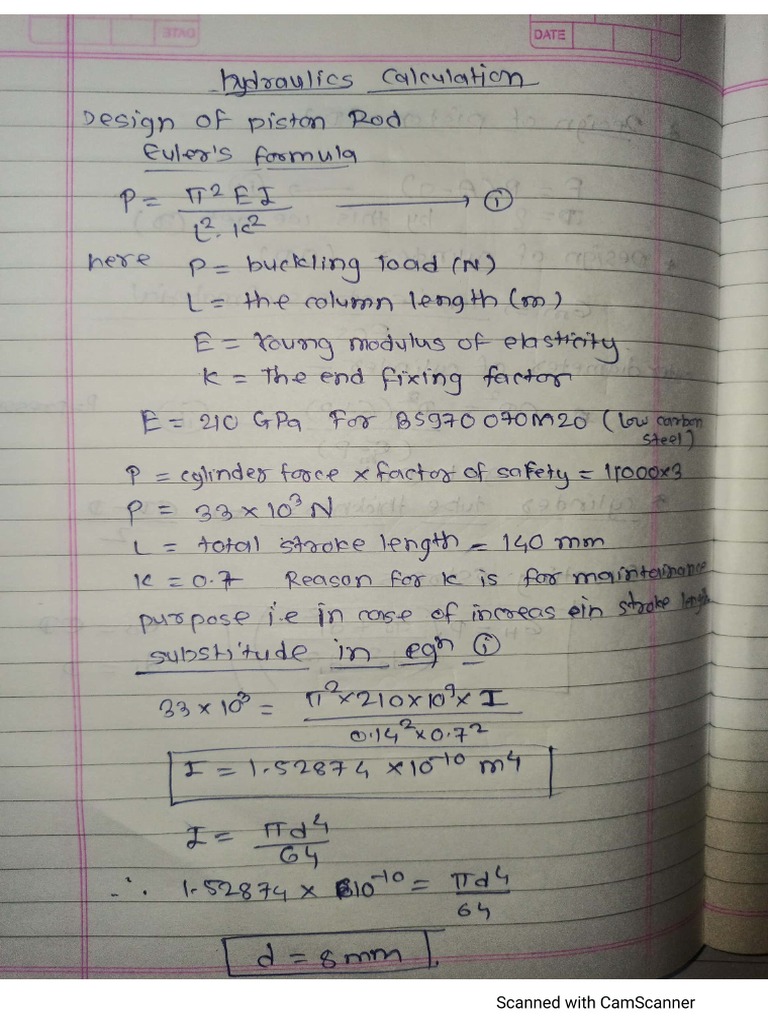 DATE
hydraulics calculation
Design of piston Rod
Euler's formula
P = π² E I / L². K² ⟶ ①
here P = buckling load (N)
L = the column length (m)
E = Young modulus of elasticity
K = The end fixing factor
E = 210 GPa for BS970 070M20 (low carbon steel)
P = cylinder force × factor of safety = 11000×3
P = 33 × 10³ N
L = total stroke length = 140 mm
K = 0.7 Reason for K is for maintainance
purpose i.e in case of increas ein stroke length
substitude in eqⁿ ①
33 × 10³ = π² × 210 × 10⁹ × I / 0.14² × 0.7²
I = 1.52874 × 10⁻¹⁰ m⁴
I = πd⁴ / 64
∴ 1.52874 × 10⁻¹⁰ = πd⁴ / 64
d = 8 mm.
Scanned with CamScanner